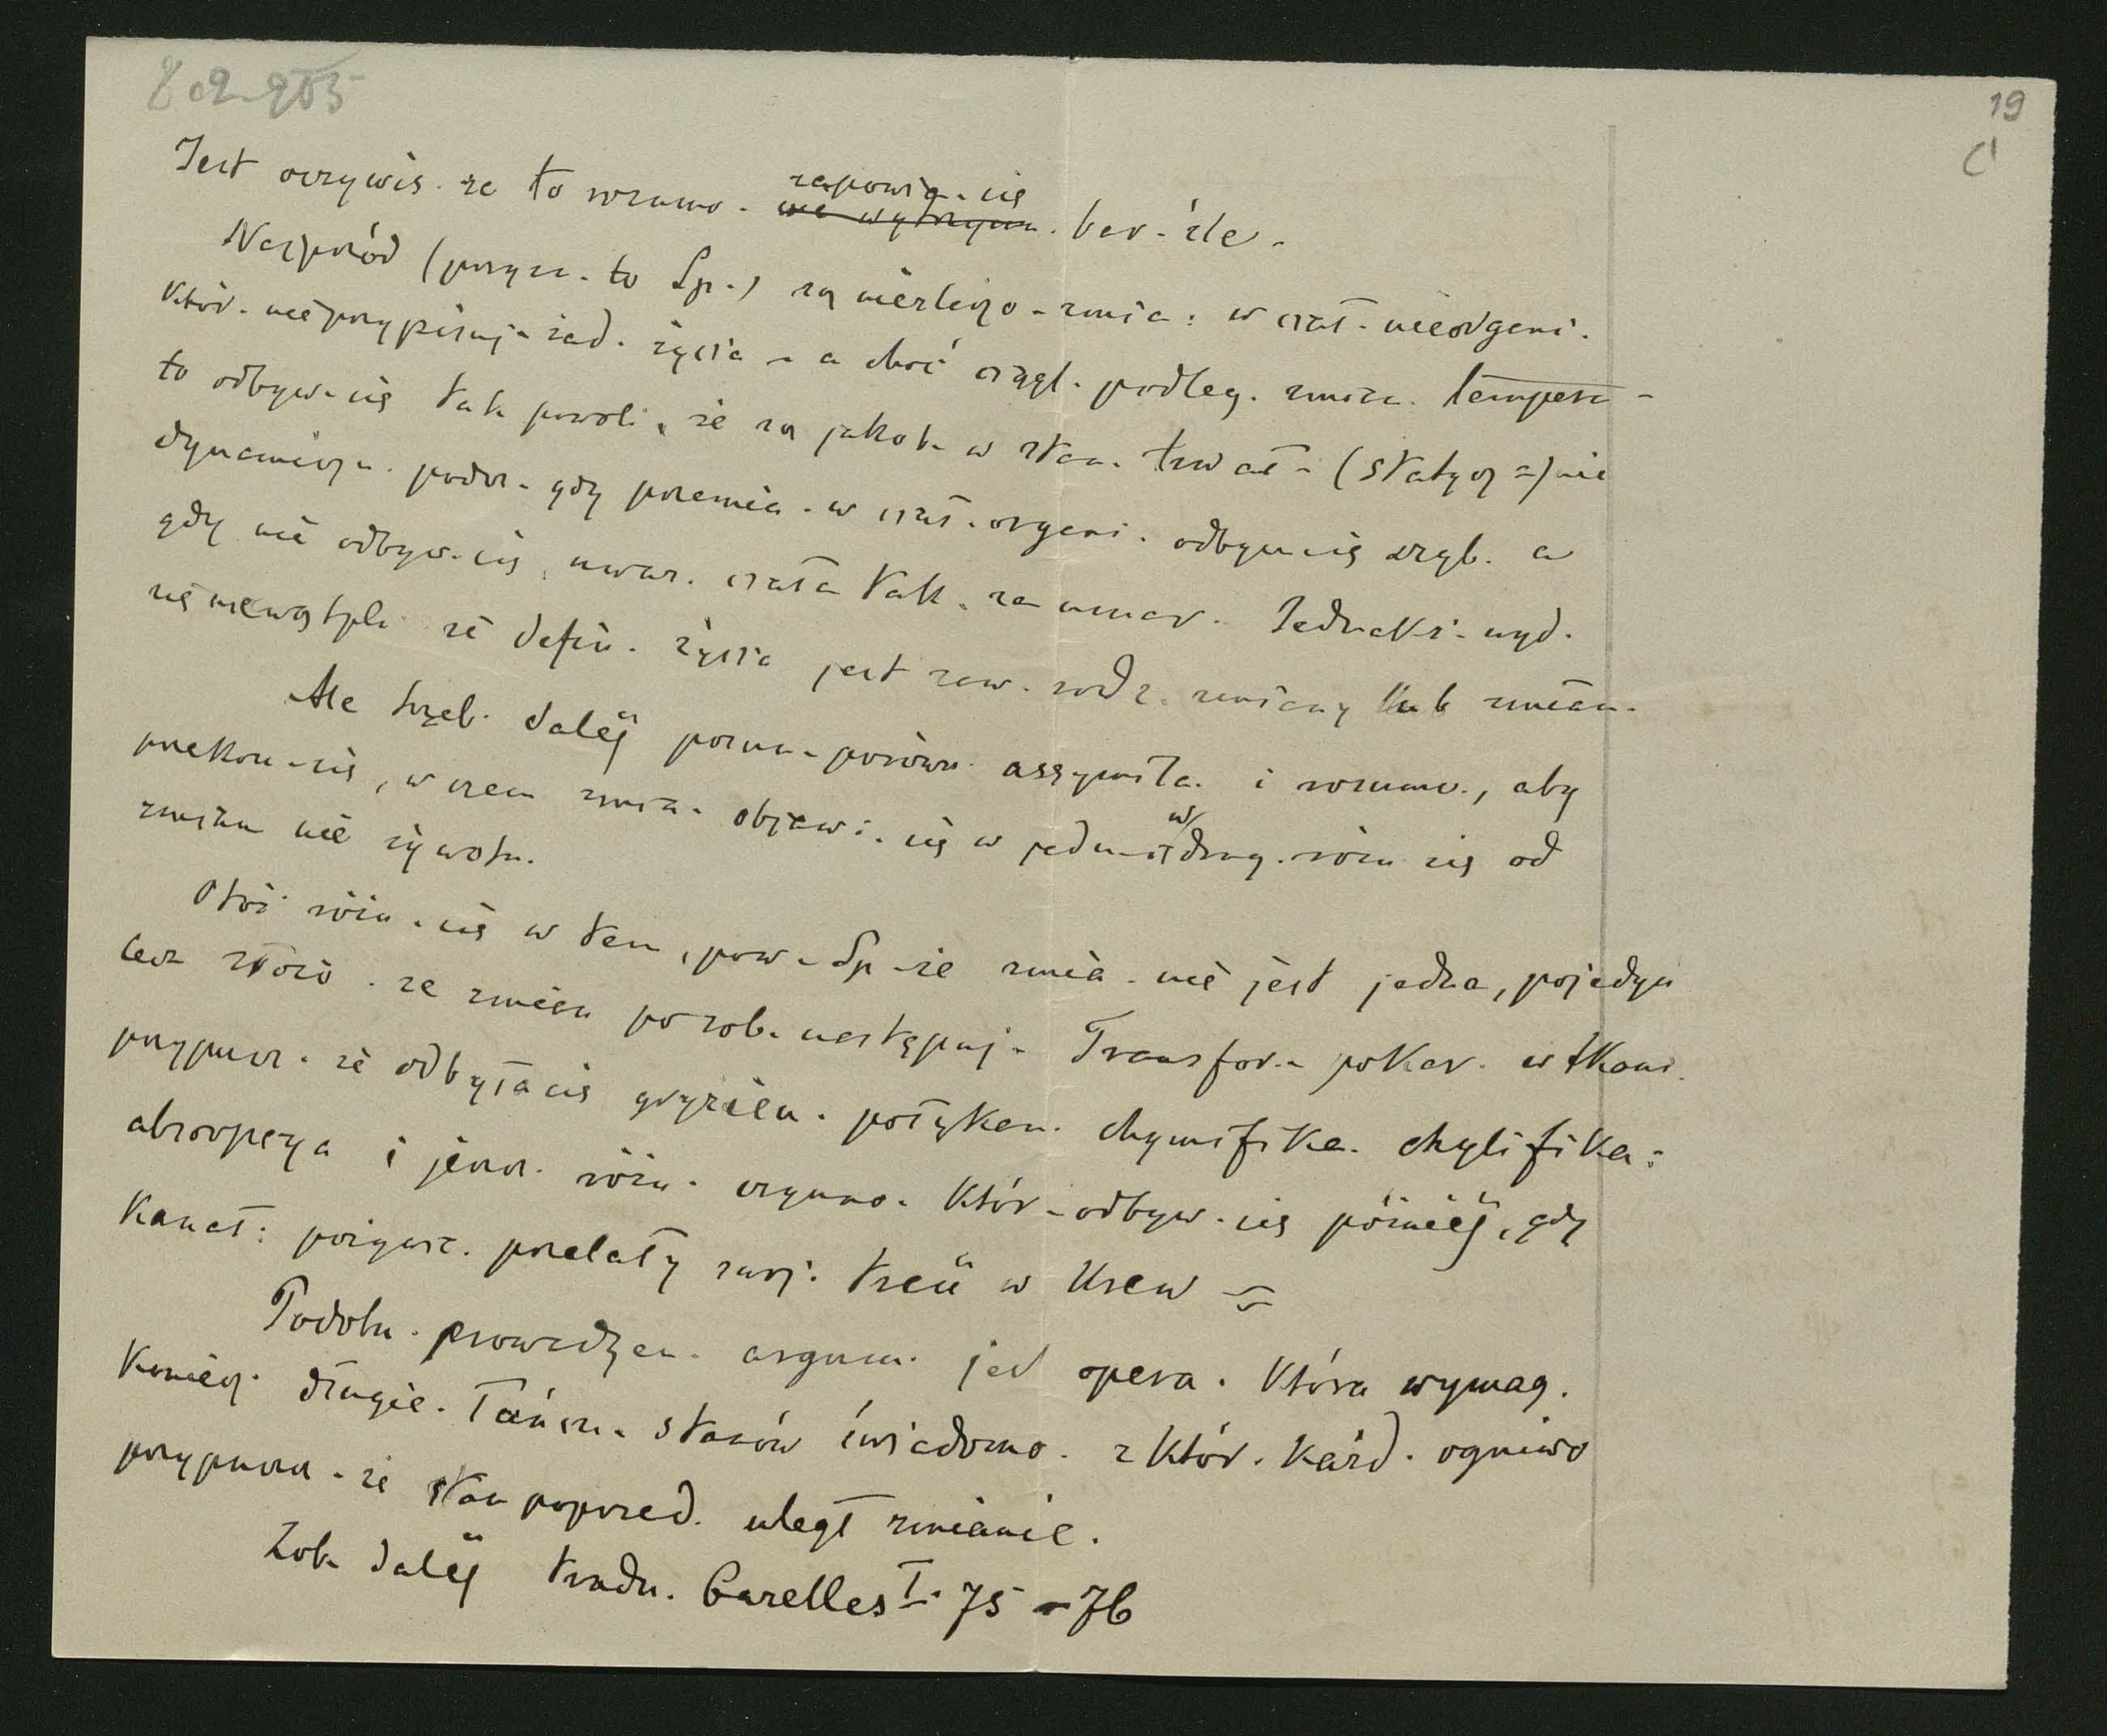 19
C
Jest oczywis. że to rozumo. zapowia. się
nie wytrzym. bar. źle.
Najprzód (przyzn. to Sp.) są niezliczo. zmia: w ciał. nieorgani.
któr. nie przypisuj. żad. życia - a choć ciągł. podleg. zmian. tempera-
to odbyw. się tak powoli, że są jakob. w stan. trwał. (statycz=) nie
dynamiczn. podcz. gdy przemia. w ciał. organi. odbyw. się szyb. a
gdy nie odbyw. się, uwaz. ciała tak. za umar. Jednakż. wyd.
się niewątpli. że defin. życia jest zaw. rodz. zmiany lub zmian.
Ale trzeb. daléj pozna. porówn. assymila. i rozumo., aby
przekon. się, w czem zmia. objawi. się w jedn. i w drug. różn się od
zmian nie żywotn.
Otóż różn. się w tem, pow. Sp. że zmia. nie jest jedna, pojedyn
lecz złożo. ze zmian po sob. następuj. Transfor. pokar. w tkani.
przypusz. że odbyła się gryzien. połykan. chymifika. chylifika:
absorpcya i jeszcz. różn. czynno. któr. odbyw. się późniéj, gdy
kanał: pożywcz. przelały swoj. treść w krew
Podobn. prowadzen. argum. jest opera. która wymag.
koniecz. długie. łańcu. stanów świadomo. z któr. każd. ogniwo
przypuszcz. że stan poprzed. uległ zmianie.
Zob. daléj tradu. Cazelles I. 75 - 76